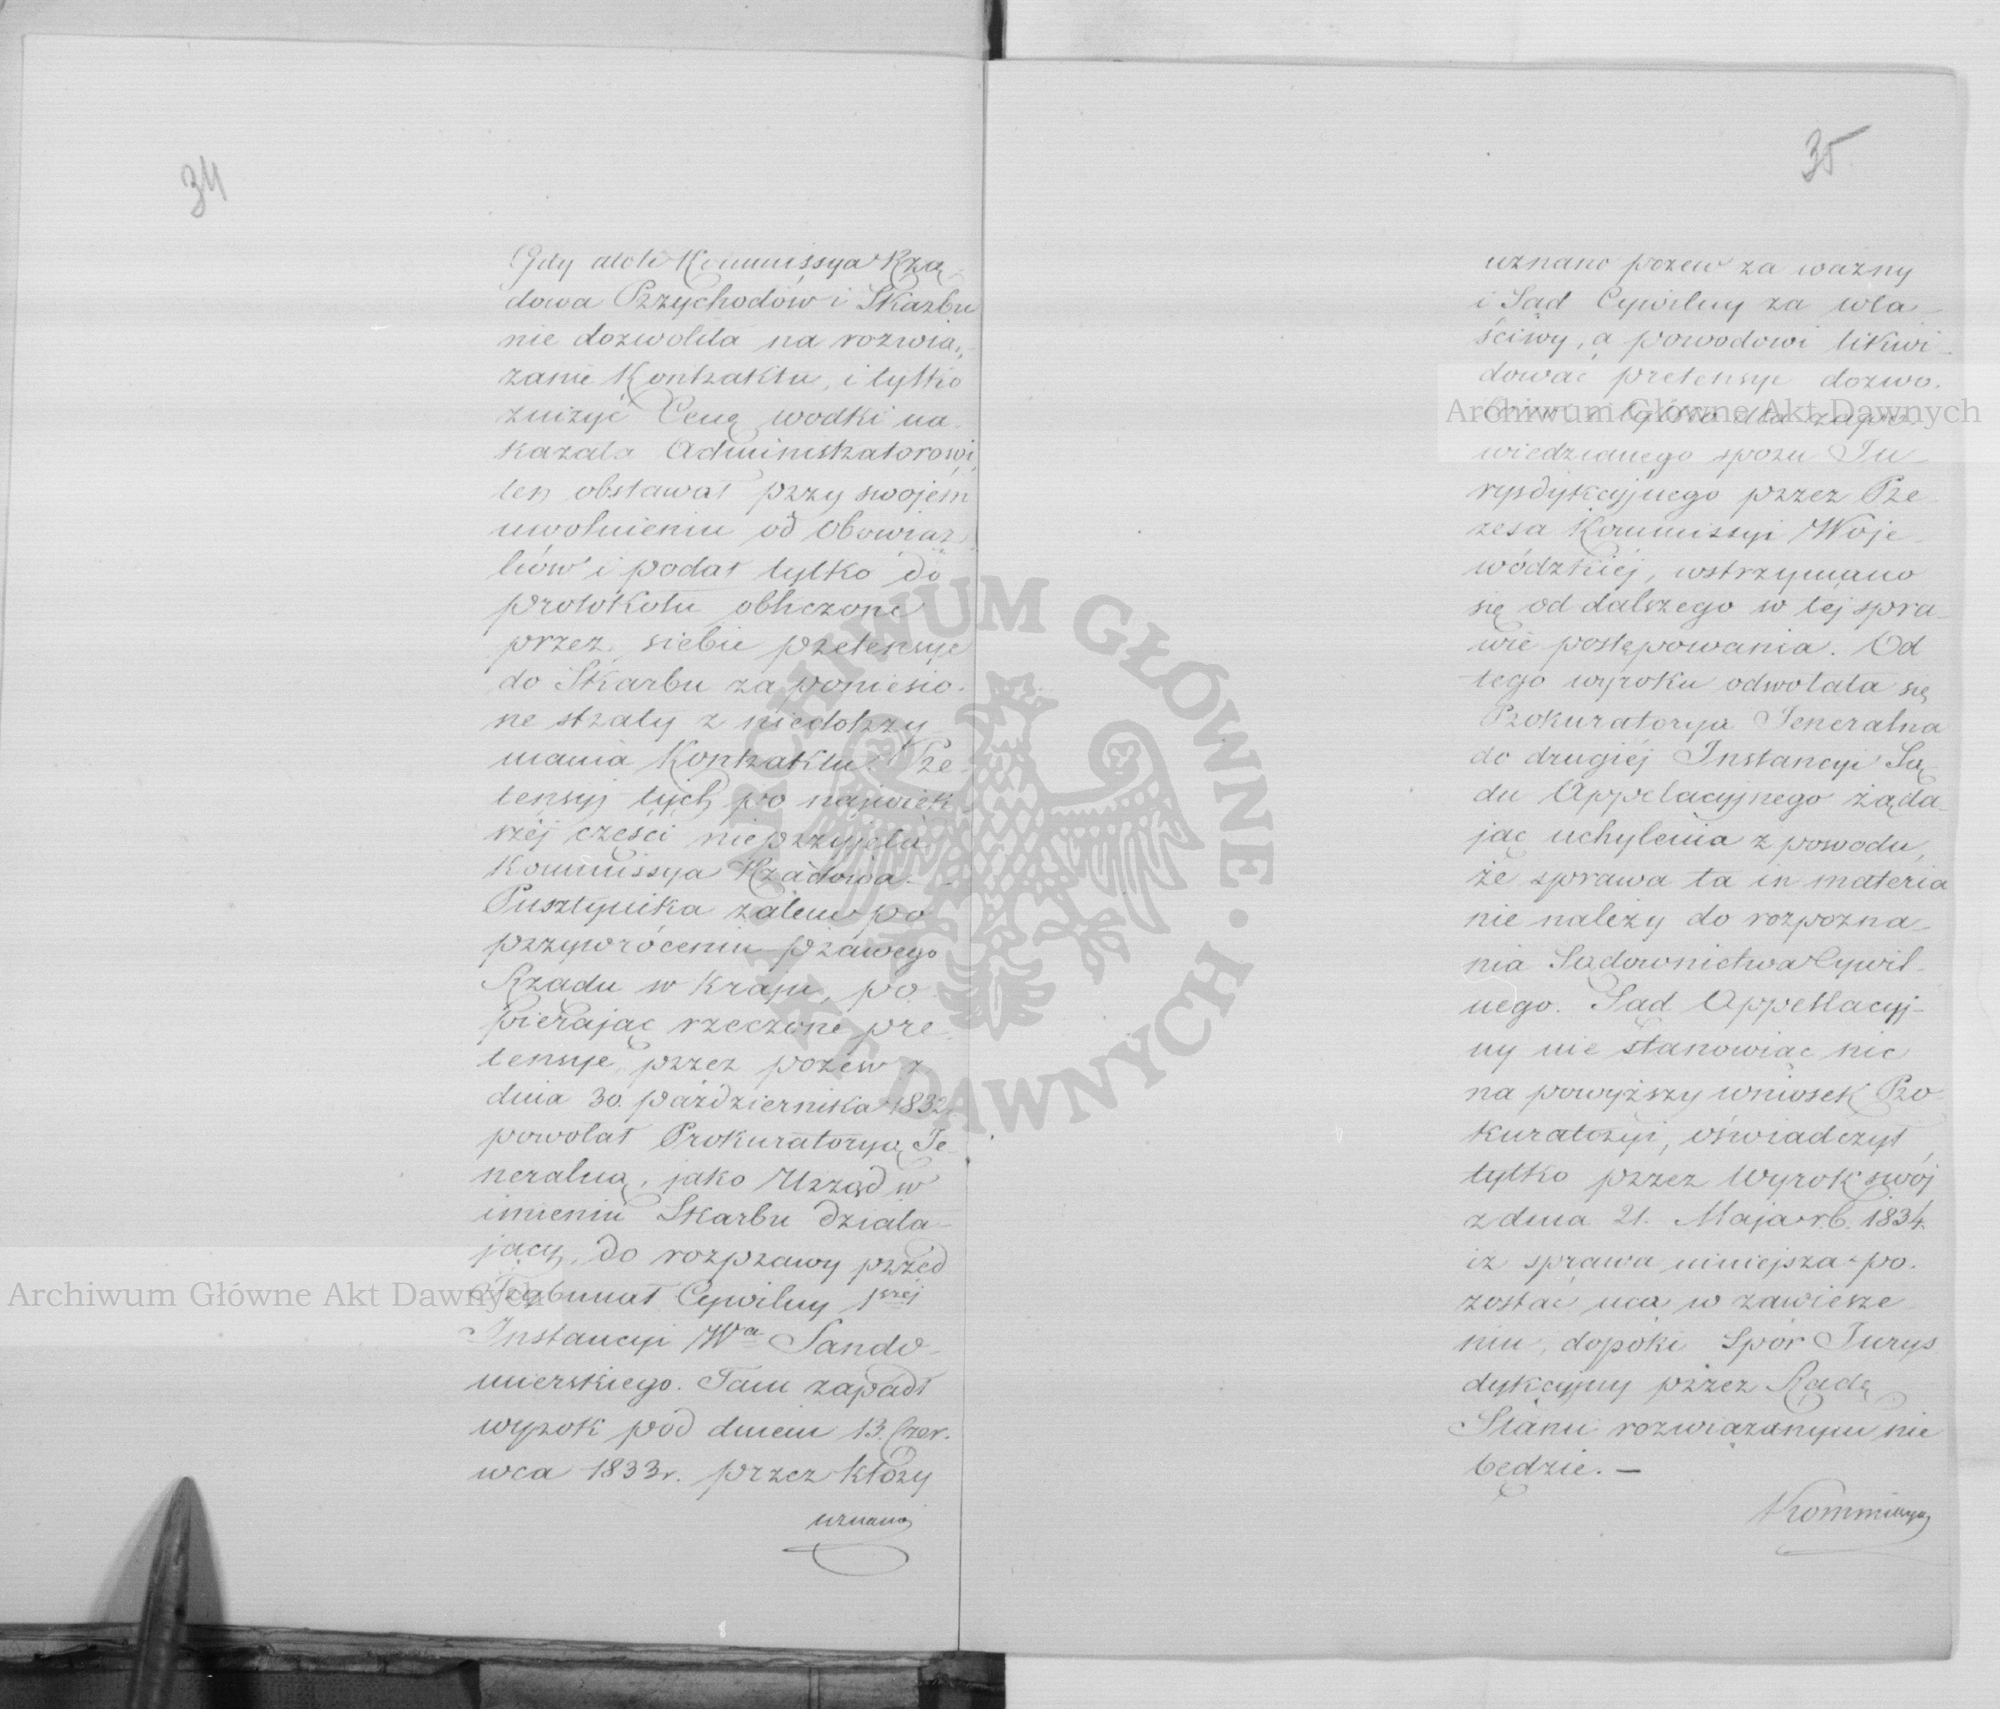 34
Gdy atoli Kommissya Rzą-
dowa Przychodów i Skarbu
nie dozwoliła na rozwią-
zanie Kontraktu, i tylko
zniżyć Cenę wodki na-
kazała Administratorowi,
ten obstawał przy swojem
uwolnieniu od Obowiąz-
ków i podał tylko do
protokołu obliczone
przez siebie pretensye
do Skarbu za poniesio-
ne straty z niedotrzy
mania Kontraktu. Pre-
tensyi tych po najwięk-
széj części nieprzyjęła
Kommissya Rządowa.
Pusztynika zatem po
przywróceniu prawego
Rządu w Kraju, po
pierając rzeczone pre-
tensye, przez pozew z
dnia 30. października 1832.
powołał Prokuratoryą Je-
neralną, jako Urząd w
imieniu Skarbu działa-
jący, do rozprawy przed
Trybunał Cywilny 1szej
Instancyi Wa Sando-
mierskiego. Tam zapadł
wyrok pod dniem 13. Czer-
wca 1833r. przez który
uznano
35
uznano pozew za ważny
i Sąd Cywilny za wła-
ściwy, a powodowi likwi-
dować pretensye dozwo-
lono, i tylko dla zapo-
wiedzianego sporu Ju-
rysdykcyjnego przez Pre-
zesa Kommissyi Woje-
wódzkiéj, wstrzymano
się od dalszego w téj spra-
wie postępowania. Od
tego wyroku odwołała się
Prokuratorya Jeneralna
do drugiéj Instancyi Są-
du Appelacyjnego żąda-
jąc uchylenia z powodu,
że sprawa ta in materia
nie należy do rozpozna-
nia Sądownictwa Cywil-
nego. Sąd Appellacyj-
ny nie stanowiąc nic
na powyższy wniosek Pro-
kuratoryi, oświadczył
tylko przez Wyrok swój
z dnia 21. Maja r.b. 1834.
iż sprawa niniejsza po-
zostać ma w zawiesze
niu, dopóki Spór Jurys
dykcyjny przez Radę
Stanu rozwiązanym nie
będzie. —
Kommissya
Archiwum Główne Akt Dawnych
Archiwum Główne Akt Dawnych
ARCHIWUM GŁÓWNE AKT DAWNYCH